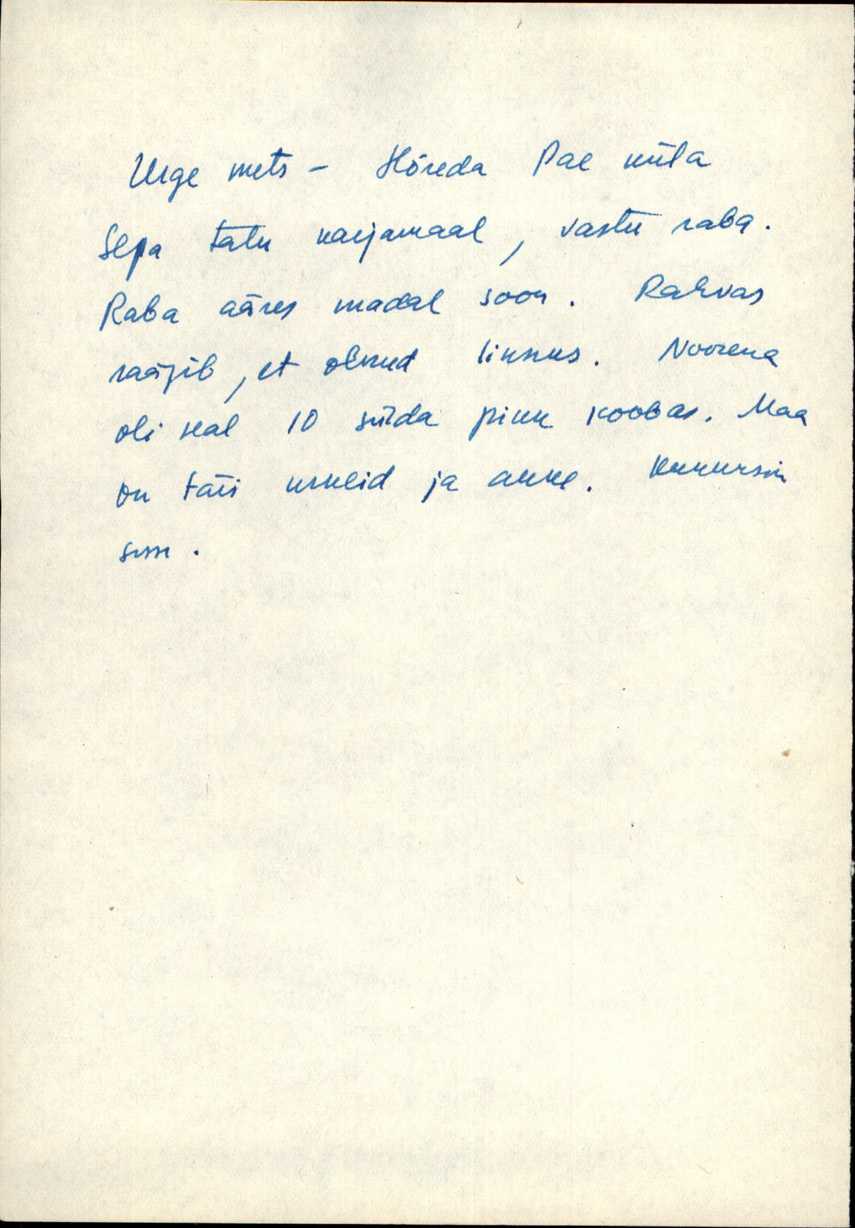 Urge mets – Hõreda Pae küla
Sepa talu karjamaal, vastu raba.
Raba ääres madal soon. Rahvas
räägib, et olnud linnus. Noorena
oli seal 10 sülda pikk koobas. Maa
on täis urkeid ja auke. Kukkusin
sisse.